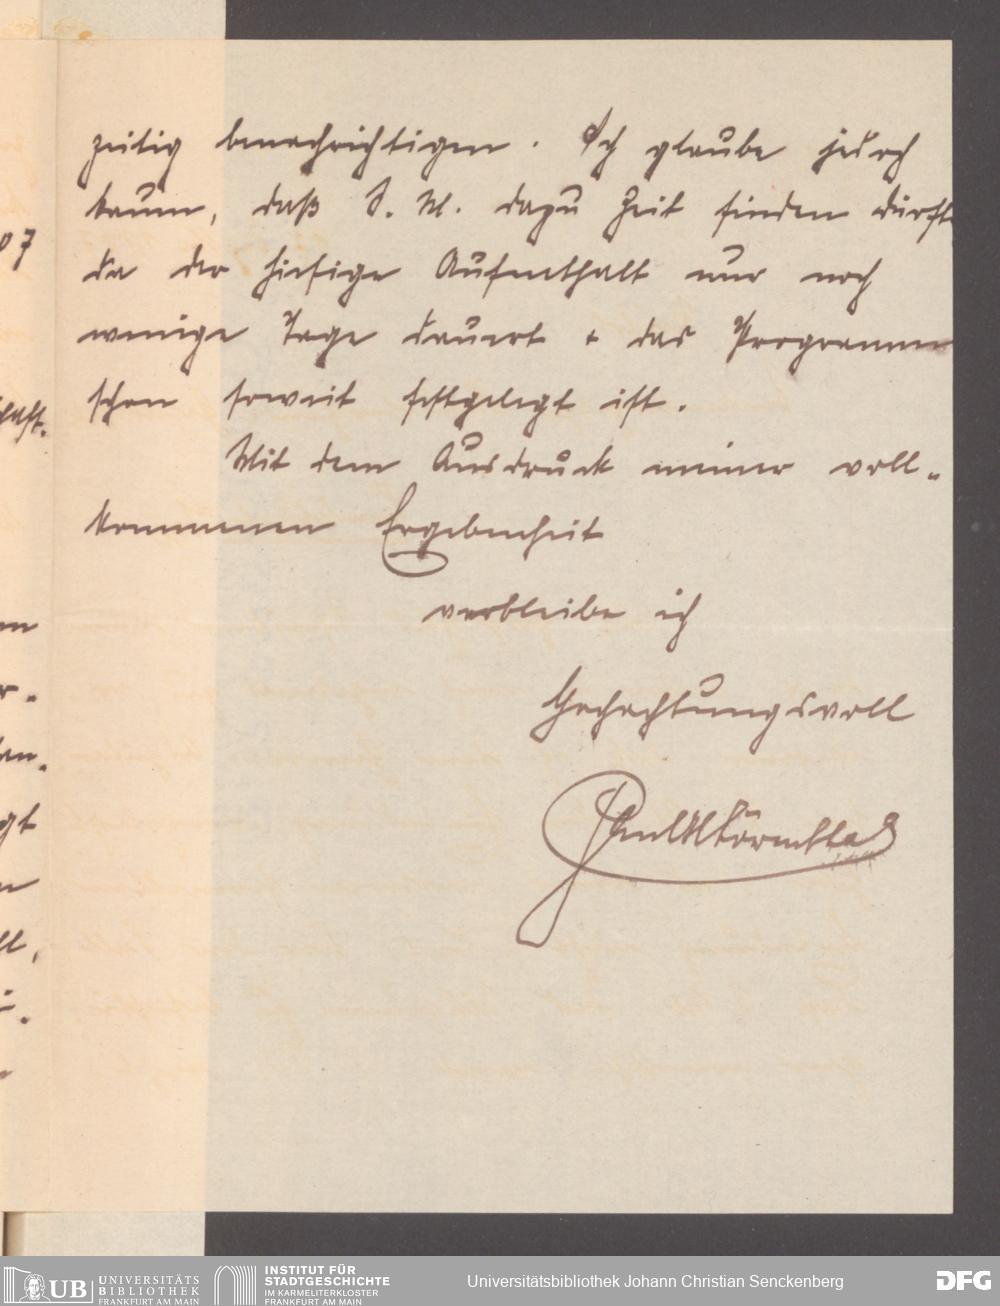 zeitig benachrichtigen. Ich glaube jedoch
kaum, daß S. M. dazu Zeit finden dürft
da der hiesige Aufenthalt nur noch
wenige Tage dauert + das Programm
schon soweit festgelegt ist.
Mit dem Ausdruck meiner voll-
kommenen Ergebenheit
verbleibe ich
Hochachtungsvoll
07
gt
UB UNIVERSITÄTS
BIBLIOTHEK
FRANKFURT AM MAIN
INSTITUT FÜR
STADTGESCHICHTE
IM KARMELITERKLOSTER
FRANKFURT AM MAIN
Universitätsbibliothek Johann Christian Senckenberg
DFG